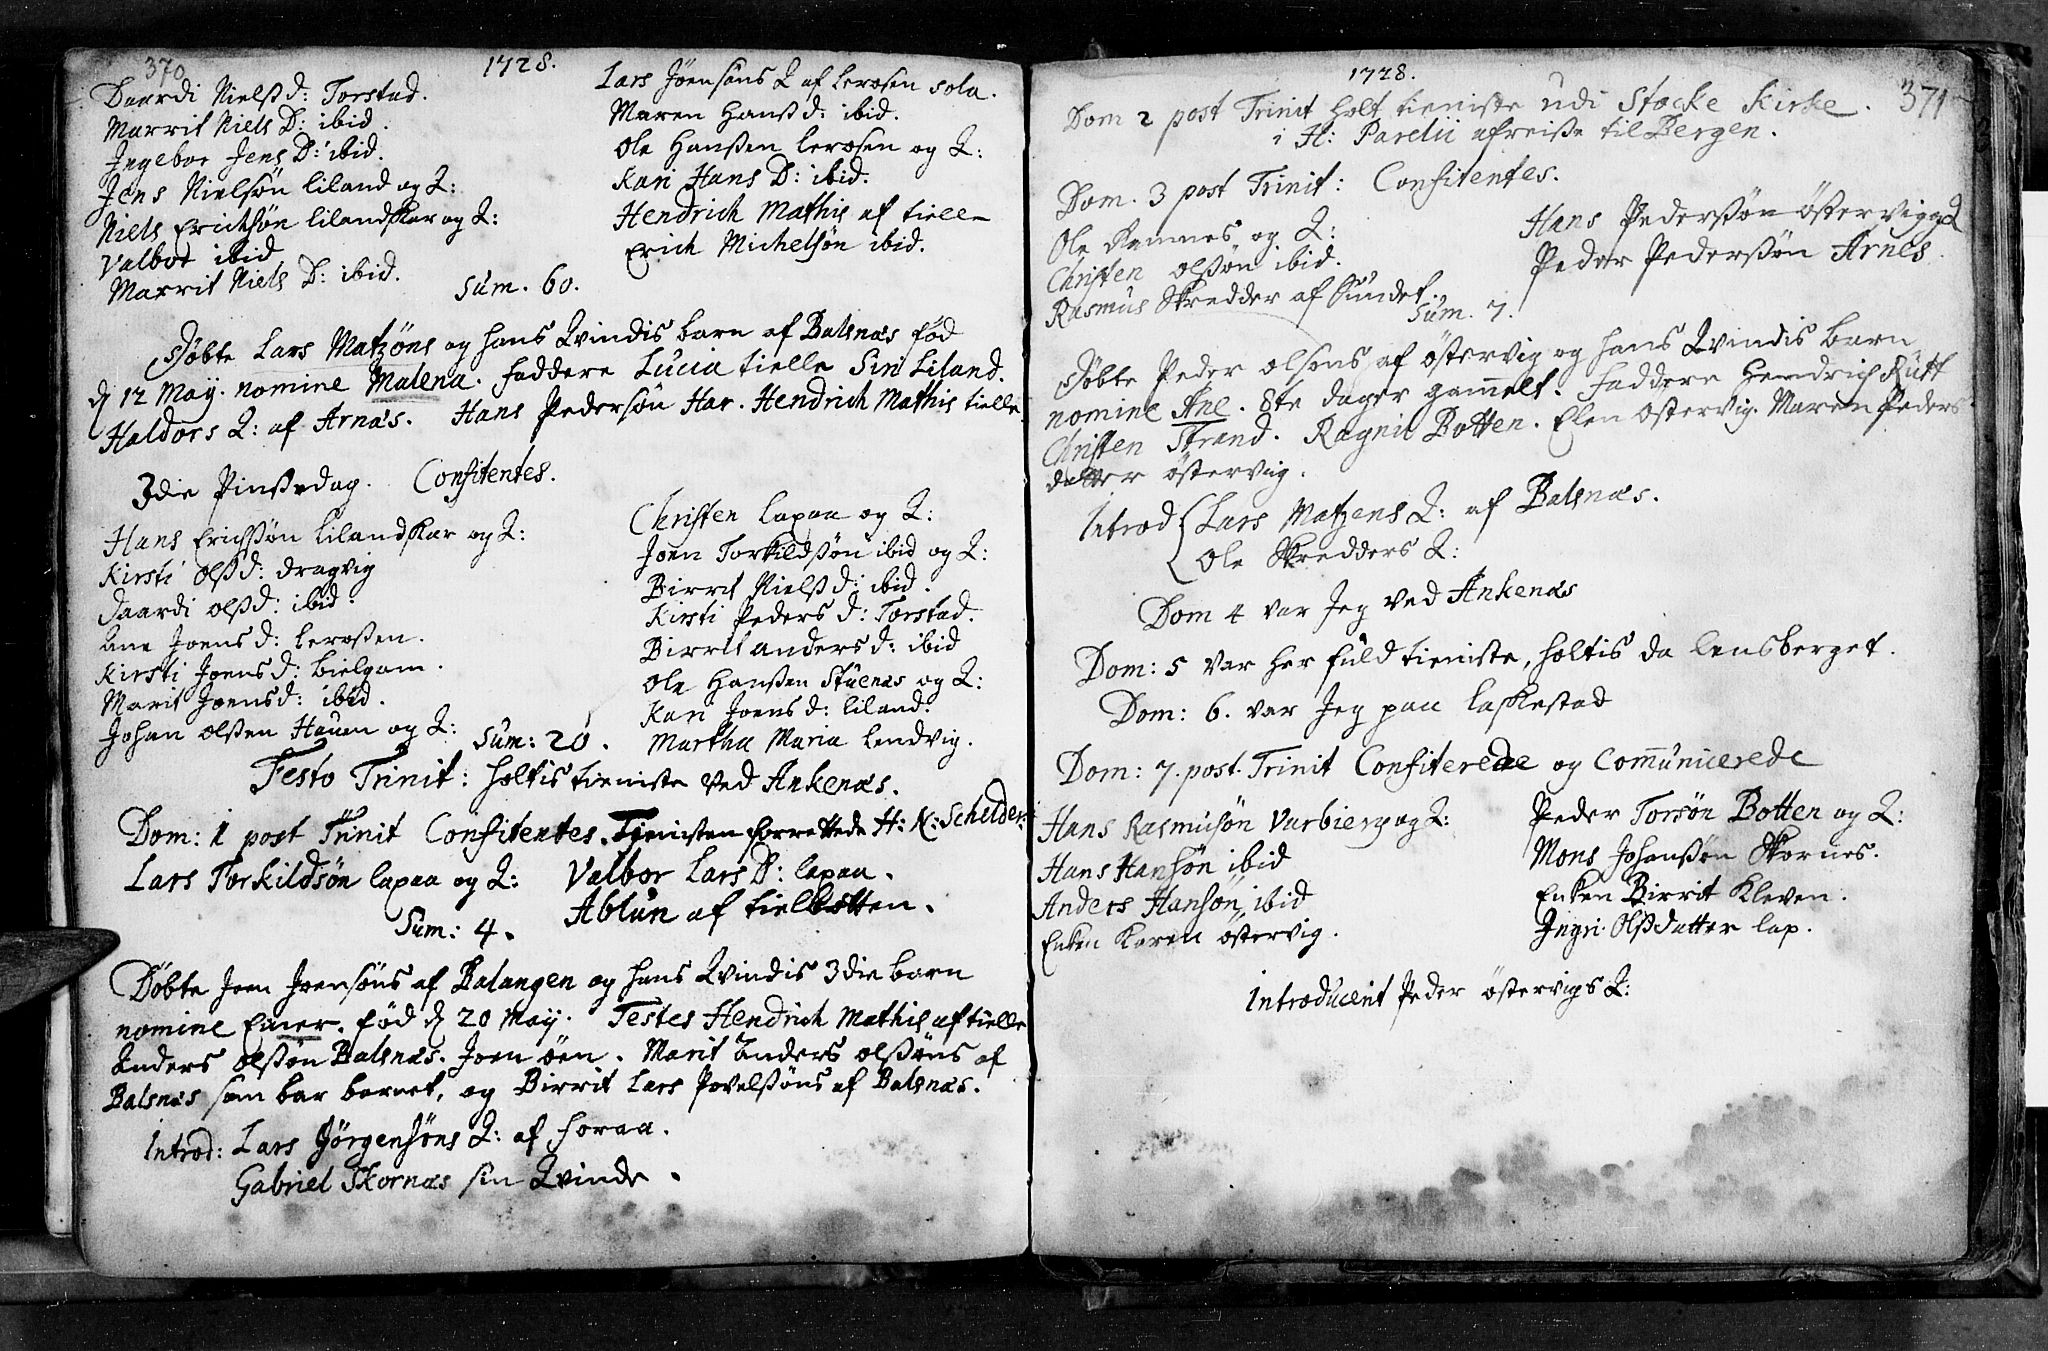 370
1728.
Daardi Nielsd: Torstad.
Marrit Niels D: ibid.
Ingebor Jens D: ibid.
Jens Nielsøn liland og Q:
Niels Erichsøn lilandskar og Q:
Valbor ibid
Marrit Niels D: ibid.
Lars Jøensøns Q af lerosen sola.
Maren Hansd: ibid.
Ole Hanßen lerosen og Q:
Kari Hans D: ibid.
Hendrich Mathis af tielle
Erich Michelsøn ibid.
Sum. 60.
Døbte Lars Matzøns og hans Qvindis barn af Balsnæs fød
d 12 May. nomine Malena. faddere Lucia tielle Siri Liland.
Haldors Q: af Arnæs. Hans Pedersøn Har. Hendrich Mathis tielle
3die Pinßedag. Confitentes.
Hans Erichsøn lilandskar og Q:
Kirsti olsd: dragvig
Daardi olsd: ibid.
Ane Joens d: leroßen.
Kirsti Joens d: bielgam.
Marit Joensd: ibid.
Johan olßen Hauen og Q:
Christen lapaa og Q:
Joen Torkildßøn ibid og Q:
Birrit Nielsd: ibid.
Kirsti Peders d: Torstad.
Birrit anders d: ibid
Ole Hanßen Stuenæs og Q:
Kari Joens d: liland:
Martha Maria lendvig.
Sum: 20.
Festo Trinit: holtis tieniste ved Ankenæs.
Dom: 1 post Trinit Confitentes. Tienisten forrettede H: N: Schelder:
Lars Torkildsøn lapaa og Q:
Valbor Lars D: lapaa.
Ablun af tielbotten.
Sum: 4.
Døbte Joen Joensøns af Balangen og hans Qvindis 3die barn
nomine Einer. fød d 20 May. Testes Hendrich Mathis af tielle
Anders olßøn Balsnæs. Joen öen. Marit Anders olßøns af
Balsnæs som bar barnet, og Birrit Lars Povelßøns af Balsnæs.
Introd: Lars Jörgensöns Q: af foraa.
Gabriel Skornæs sin Qvinde.
1728.
371
Dom 2 post Trinit holt tieniste udi Stocke Kirke.
i H: Parelii afreiße til Bergen.
Dom. 3 post Trinit: Confitentes.
Ole Ramnes og Q:
Christen olßøn ibid.
Rasmus Skredder af Sundet.
Hans Pederßøn östervig og Q
Peder Pederßøn Arnes.
Sum. 7.
Døbte Peder olsøns af östervig og hans Qvindis barn
nomine Ane. 8te dager gam̅elt. Faddere Hendrich Rütt
Christen Strand. Ragnil Botten. Elen östervig. Maren Peders
datter östervig.
Introd Lars Matzens Q: af Balsnæs.
Ole Skredders Q:
Dom 4 var Jeg ved Ankenæs
Dom: 5 var her fuld tieniste, holtis da lensberget.
Dom: 6. var Jeg paa laskestad
Dom: 7. post. Trinit Confiterede og Com̅unicerede
Hans Rasmusøn Varbierg og Q:
Hans Hansøn ibid
Anders Hansøn ibid
Enken Karen östervig.
Peder Torsøn Botten og Q:
Mons Johanßøn Skornes.
Enken Birrit Kleven.
Ingri Olßdatter lap.
Introducerit Peder östervigs Q: